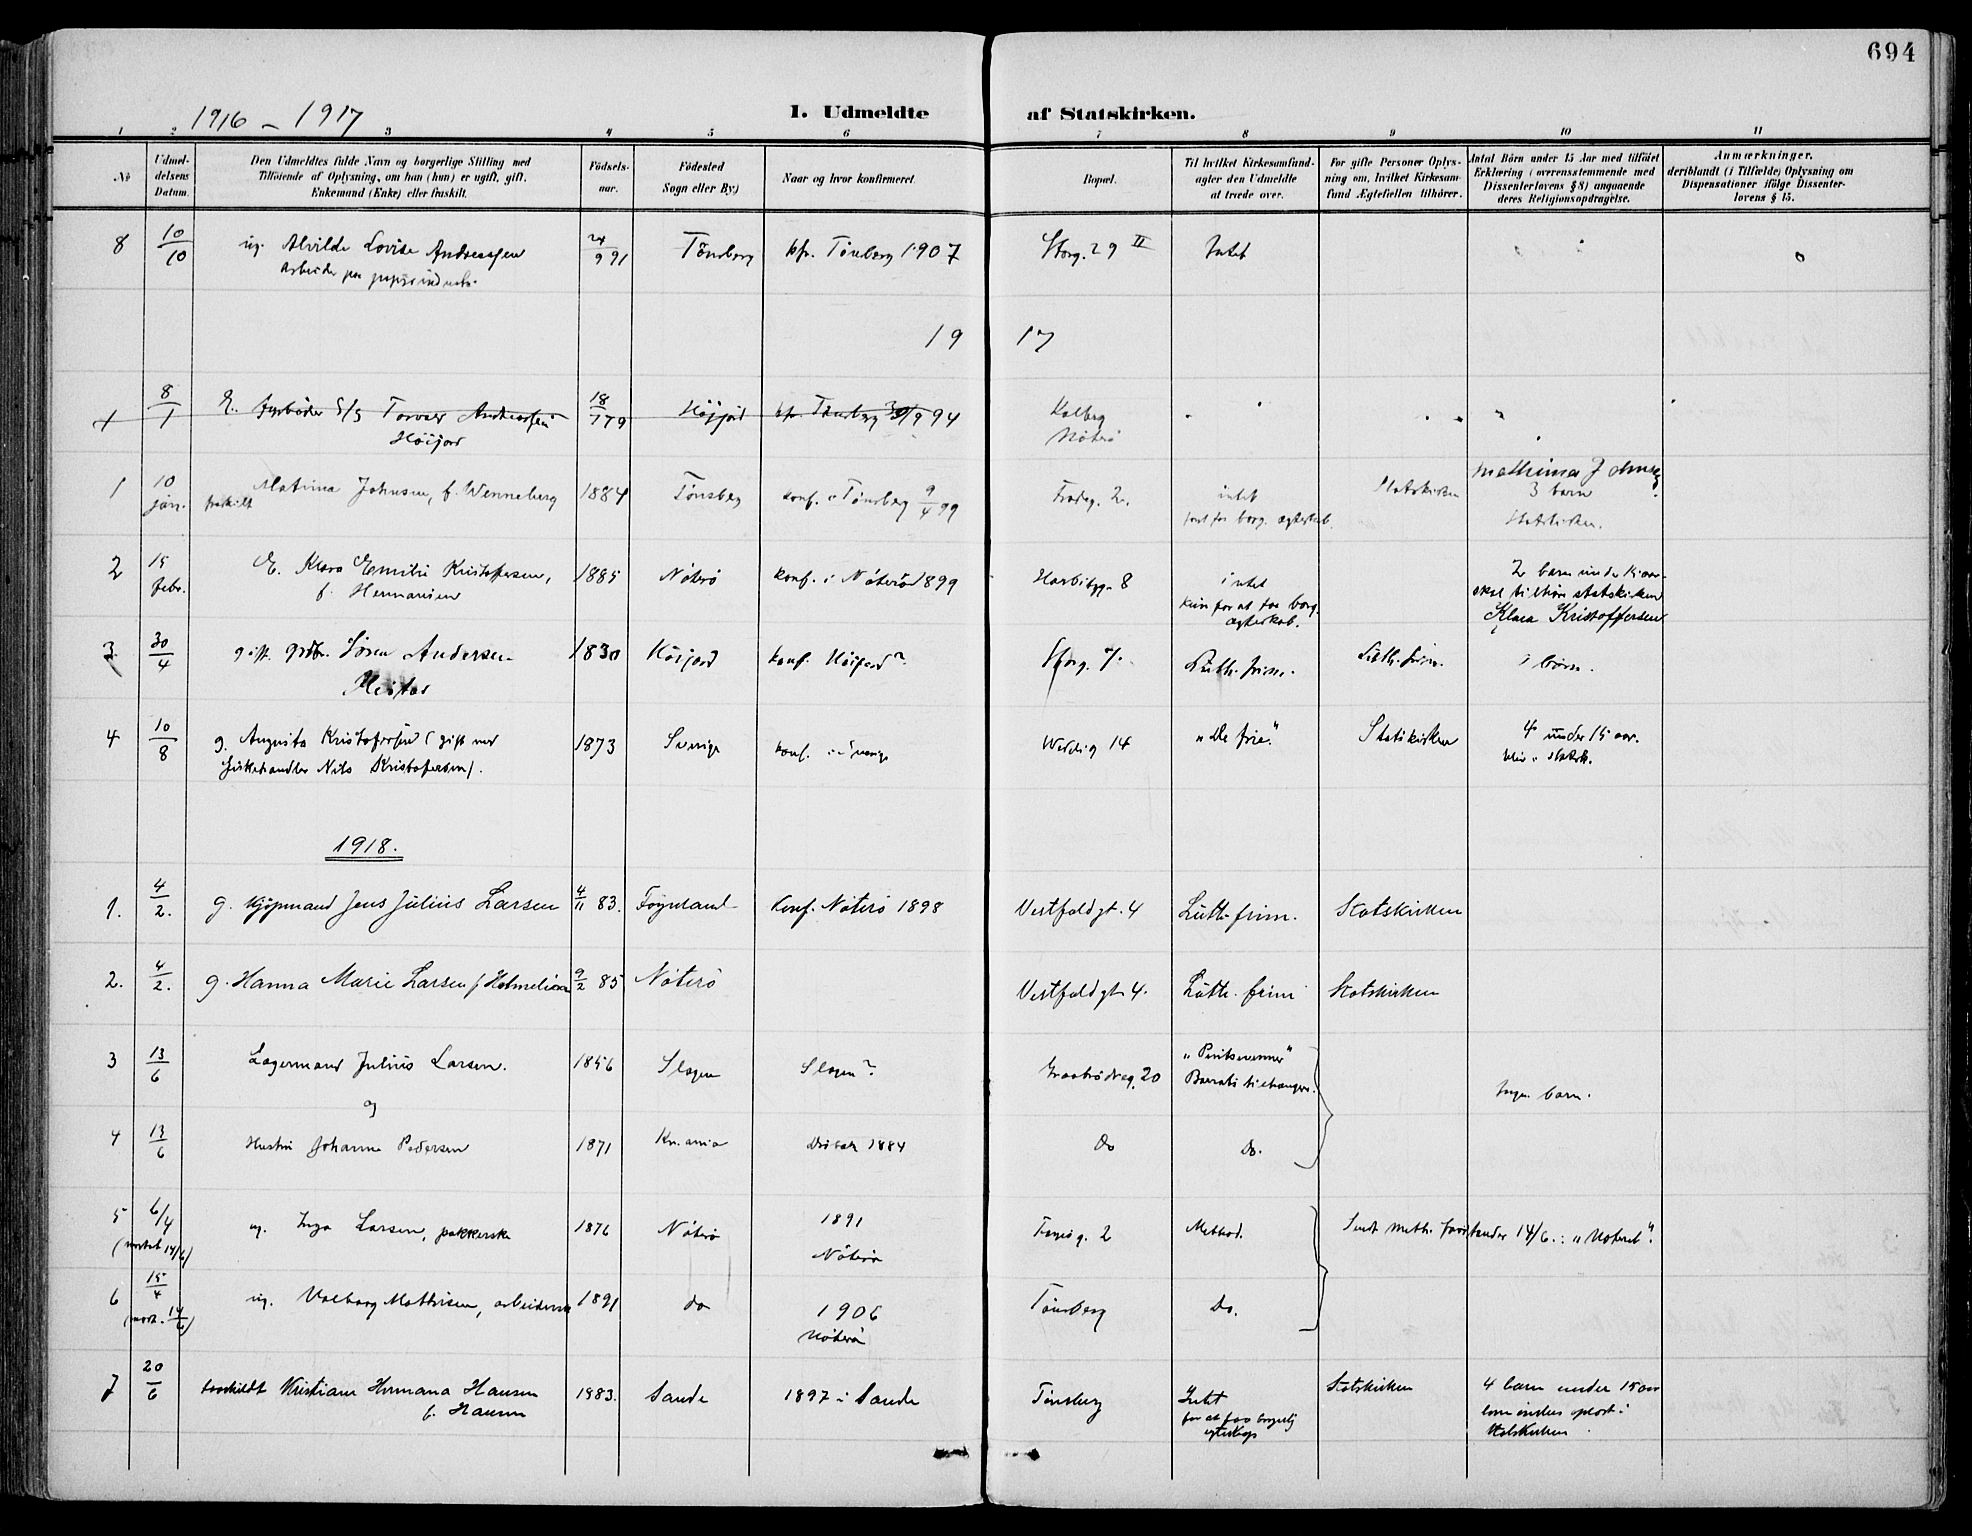 694
1916 - 1917
1. Udmeldte af Statskirken.
1 2 3 4 5 6 7 8 9 10 11
No
Udmeldelsens Datum.
Den Udmeldtes fulde Navn og borgerlige Stilling med Tilføiende af Oplysning, om han (hun) er ugift, gift, Enkemand (Enke) eller fraskilt.
Fødselsaar.
Fødested Sogn eller By)
Naar og hvor konfirmeret.
Bopæl.
Til hvilket Kirkesamfund agter den Udmeldte at træde over.
For gifte Personer Oplysning om, hvilket Kirkesamfund Ægtefællen tilhører.
Antal Børn under 15 Aar med tilføiet Erklæring (overensstemmende med Dissenterlovens § 8) angaaende deres Religionsopdragelse.
Anmærkninger, deriblandt (i Tilfælde) Oplysning om Dispensationer ifølge Dissenterlovens § 15.
8 10/10 ug. Alvilde Lovise Andreassen 24/9 91 Tönsberg kfr. Tönsberg 1907 Storg. 29 II Intet
arbeider paa
1917
1 8/1 E. fyrböder Torvald Andreassen 18/7 79 Höijord kfr. Tönsberg 30/9 94 Kalberg
Höijord Nöterö
1 10 jan. fraskilt Matima Johnsen, f. Wenneberg 1884 Tönsberg konf. i Tönsberg 9/4 99 2. intet Statskirken Mathima Johnsen
borg. ægteskab. 3 barn
Statskirken.
2 15 febr. E. Klara Emilie Kristoffersen, 1885 Nöterö konf. i Nöterö 1899 8 intet 2 barn under 15 aar
f. Hermansen kun for at faa borg. ægteskab. skal tilhöre statskirken
Klara Kristoffersen
3 30/4 gift. Sören Andersen 1830 Höijord konf. Höijord? Storg. Luth. frim. Luth. frim. 0 börn.
4 10/8 g. Augusta Kristofersen (gift med 1873 Sverige konf. i Sverige 14 "De frie." Statskirken 4 under 15 aar.
Nils Kristofersen). i statsk.
1918.
1. 4/2. g. Kjöpmand Jens Julius Larsen 4/11 83. Föynland Konf. Nöterö 1898 Vestfoldgt. 4 Luth. frim. Statskirken
2. 4/2. g. Hanna Marie Larsen f. 9/2 85 Nöterö Vestfoldgt. 4. Luth. frim Statskirken
3 13/6 Lagermand Julius Larsen. 1856 Slagen Slagen? 20 "Pintsevenner"
Barrats tilhængere. Ingen barn.
og
4 13/6 Hustru Johanne Pedersen 1871 Kr.ania Dröbak 1884 Do Do.
5 6/4 ug. Inga Larsen, pakkerske 1876 Nöterö 1891 2 Method. Sendt Meth. forstander 14/6.: "Noteret".
(notert 14/6) Nöterö
6 15/4 ug. Valborg Mathisen, arbeiderske 1891 do 1906 Tönsberg Do.
(mott. 14/6) Nöterö
7 20/6 fraskildt Kristiane Hermana Hansen 1883. Sande 1897 i Sande Tönsberg Intet Statskirken 4 barn under 15 aar
f. Hansen for at faa borgerlig opdrat i
Statskirken